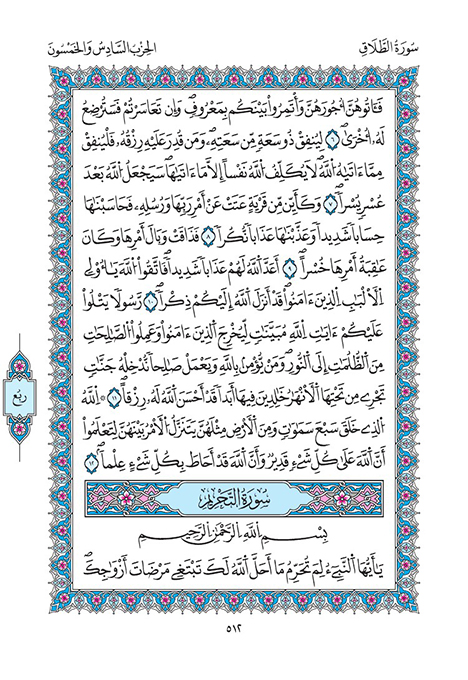 سُورَةُ الطَّلَاقِ
الحِزْبُ السَّادِسُ وَالخَمْسُونَ
فَـَٔاتُوهُنَّ أُجُورَهُنَّ وَأْتَمِرُواْ بَيْنَكُم بِمَعْرُوفٍ وَإِن تَعَاسَرْتُمْ فَسَتُرْضِعُ
لَهُۥ أُخْرَىٰ ٦ لِيُنفِقْ ذُو سَعَةٍ مِّن سَعَتِهِۦ وَمَن قُدِرَ عَلَيْهِ رِزْقُهُۥ فَلْيُنفِقْ
مِمَّا ءَاتَىٰهُ اُللَّهُ لَا يُكَلِّفُ اُللَّهُ نَفْسًا إِلَّا مَا ءَاتَىٰهَا سَيَجْعَلُ اُللَّهُ بَعْدَ
عُسْرٍ يُسْرًا ٧ وَكَأَيِّن مِّن قَرْيَةٍ عَتَتْ عَنْ أَمْرِ رَبِّهَا وَرُسُلِهِۦ فَحَاسَبْنَٰهَا
حِسَابًا شَدِيدًا وَعَذَّبْنَٰهَا عَذَابًا نُّكُرًا ٨ فَذَاقَتْ وَبَالَ أَمْرِهَا وَكَانَ
عَٰقِبَةُ أَمْرِهَا خُسْرًا ٩ أَعَدَّ اَللَّهُ لَهُمْ عَذَابًا شَدِيدًا فَاتَّقُواْ اُللَّهَ يَٰٓأُوْلِي
اِلْأَلْبَٰبِ اِلَّذِينَ ءَامَنُواْ قَدْ أَنزَلَ اَللَّهُ إِلَيْكُمْ ذِكْرًا ١٠ رَّسُولًا يَتْلُواْ
عَلَيْكُمْ ءَايَٰتِ اِللَّهِ مُبَيَّنَٰتٍ لِّيُخْرِجَ اَلَّذِينَ ءَامَنُواْ وَعَمِلُواْ اُلصَّٰلِحَٰتِ
مِنَ اَلظُّلُمَٰتِ إِلَى اَلنُّورِ وَمَن يُؤْمِنۢ بِاللَّهِ وَيَعْمَلْ صَٰلِحًا نُدْخِلْهُ جَنَّٰتٍ
تَجْرِي مِن تَحْتِهَا اَلْأَنْهَٰرُ خَٰلِدِينَ فِيهَا أَبَدًا قَدْ أَحْسَنَ اَللَّهُ لَهُۥ رِزْقًا ١١ ۞ اَللَّهُ
اُلَّذِي خَلَقَ سَبْعَ سَمَٰوَٰتٍ وَمِنَ اَلْأَرْضِ مِثْلَهُنَّ يَتَنَزَّلُ اُلْأَمْرُ بَيْنَهُنَّ لِتَعْلَمُواْ
أَنَّ اَللَّهَ عَلَىٰ كُلِّ شَيْءٍ قَدِيرٌ وَأَنَّ اَللَّهَ قَدْ أَحَاطَ بِكُلِّ شَيْءٍ عِلْمًا ١٢
رُبُع
سُورَةُ التَّحْرِيمِ
بِسْمِ اللَّهِ الرَّحْمَٰنِ الرَّحِيمِ
يَٰٓأَيُّهَا اَلنَّبِيٓءُ لِمَ تُحَرِّمُ مَا أَحَلَّ اَللَّهُ لَكَ تَبْتَغِي مَرْضَاتَ أَزْوَٰجِكَ
٥١٢